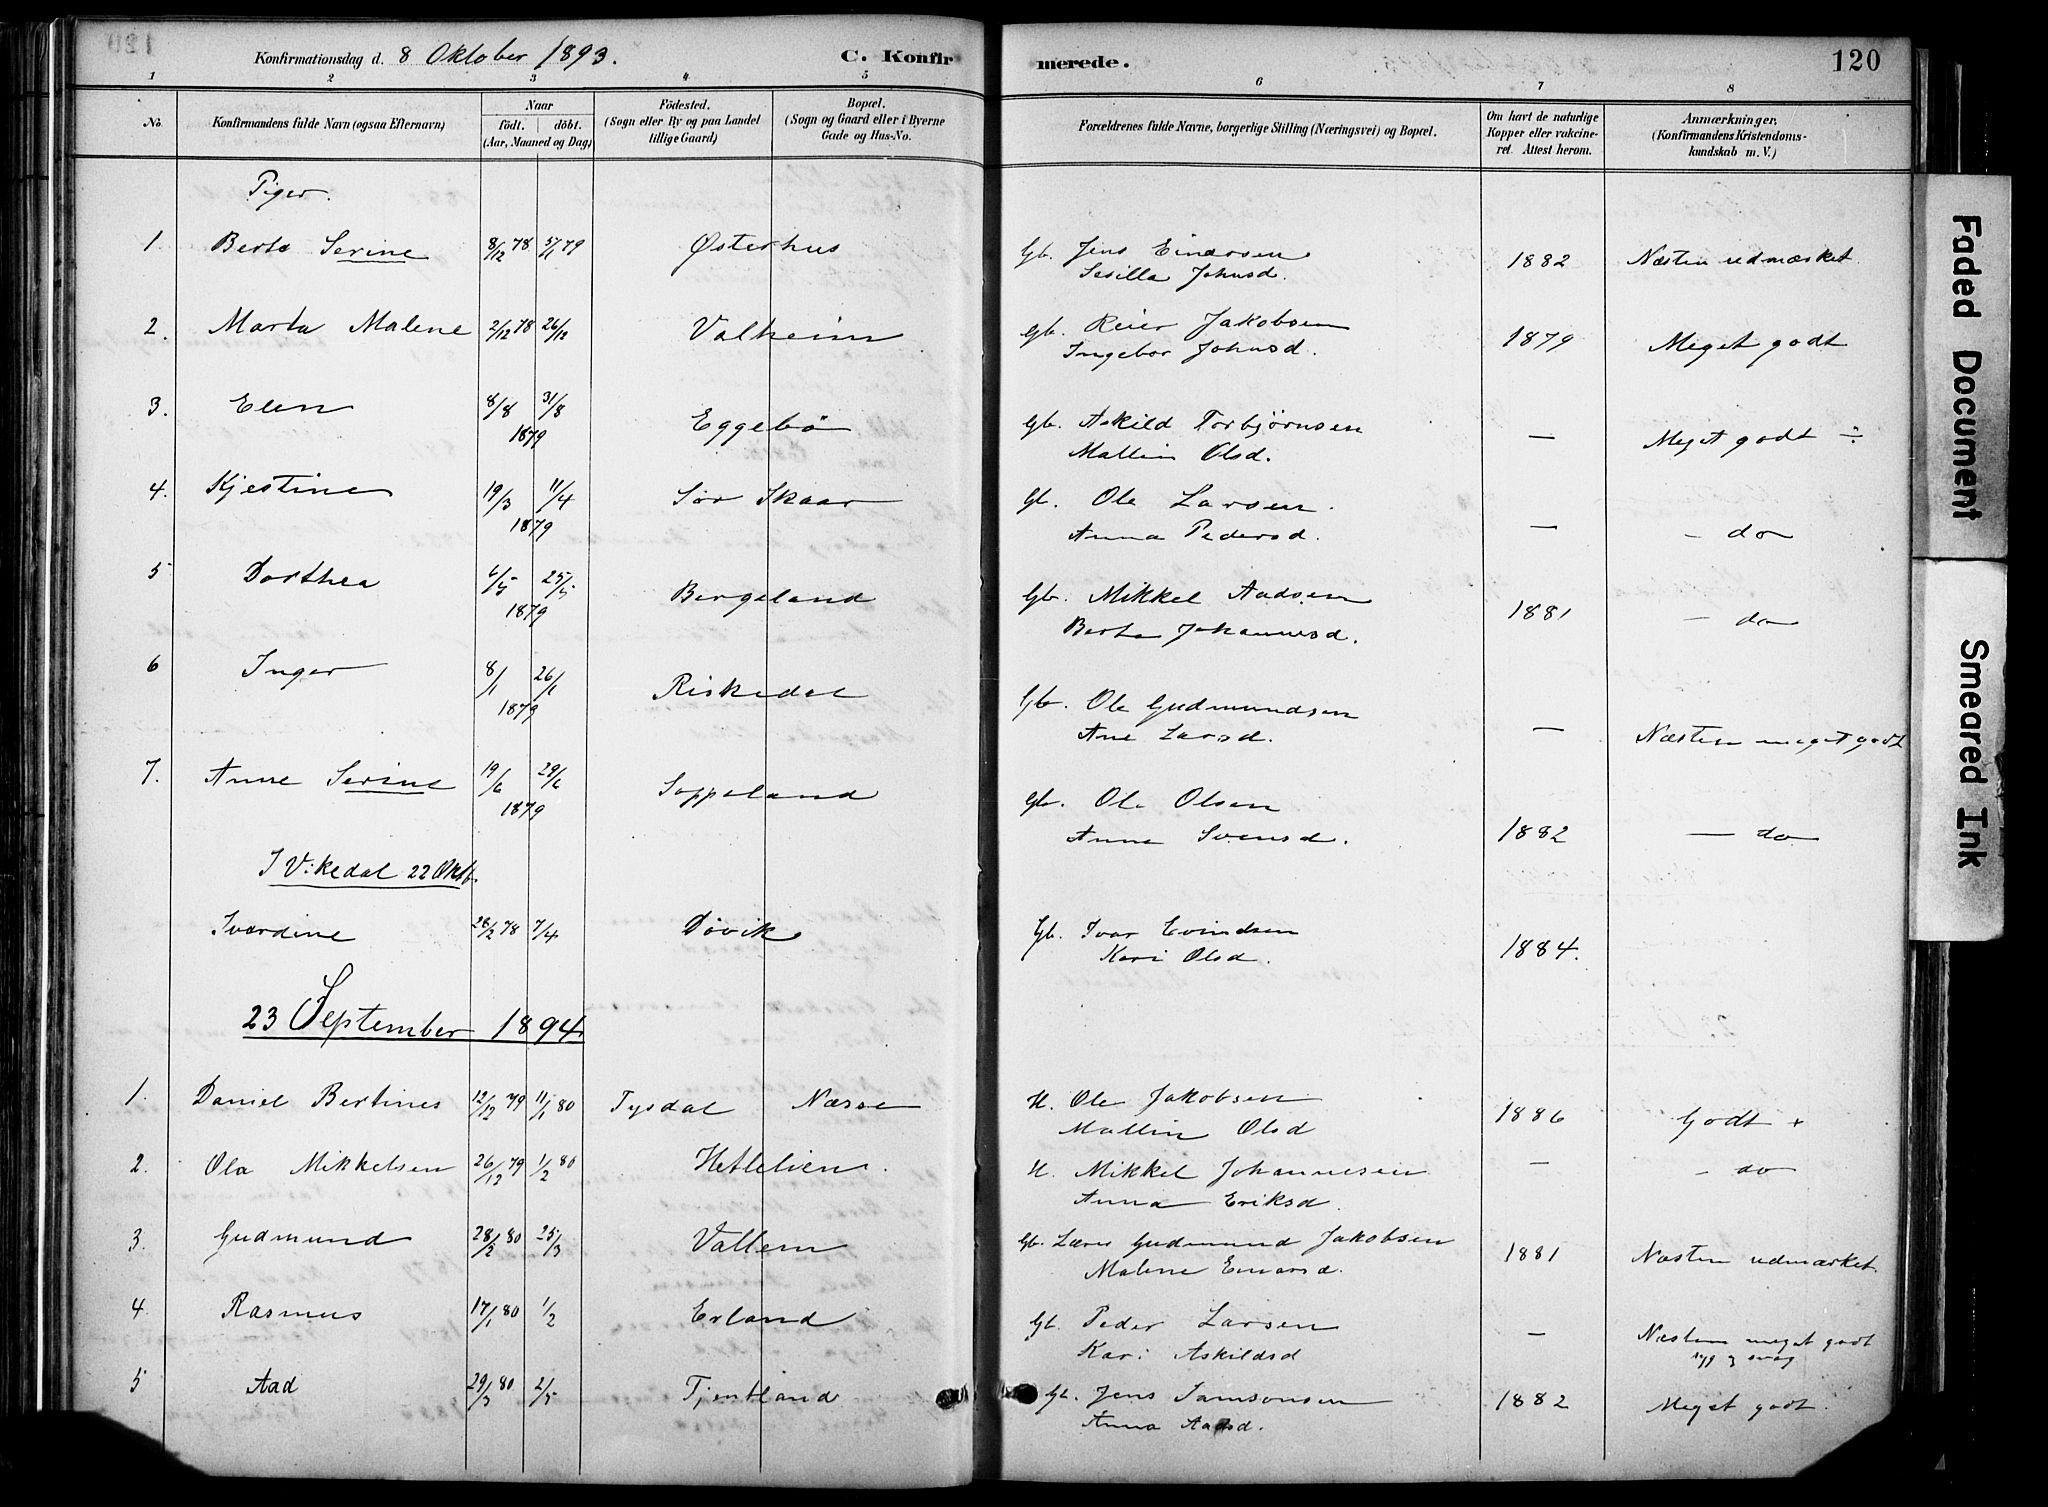 Konfirmationsdag d. 8 Oktober 1893. C. Konfir merede. 120
1 2 3 4 5 6 7 8
No. Konfirmandens fulde Navn (ogsaa Efternavn) Naar födt. döbt. (Aar, Maaned og Dag) Födested. (Sogn eller By og paa Landet tillige Gaard) Bopæl. (Sogn og Gaard eller i Byerne Gade og Hus-No. Forældrenes fulde Navne, borgerlige Stilling (Næringsvei) og Bopæl. Om havt de naturlige Kopper eller vakcineret. Attest herom. Anmærkninger. (Konfirmandens Kristendomskundskab m. V.)
Piger.
1 Berta Serine 8/12 78 5/1 79 Østerhus Gb. Jens Einarsen 1882 Næsten udmærket
Sesilla Johnsd.
2. Marta Malene 2/12 78 26/12 Valheim Gb. Reier Jakobsen 1879 Meget godt
Ingebor Johnsd.
3. Elen 8/8 31/8 1879 Eggebö Gb. Askild Torbjørnsen — Meget godt ÷
Mallin Olsd.
4. Kjestine 19/3 11/4 1879 Sør Skaar Gb. Ole Larsen — – do
Anna Pedersd.
5 Dorthea 6/5 25/5 1879 Bergeland Gb. Mikkel Aadsen 1881 – do
Berta Johannesd.
6 Inger 8/1 26/1 1879 Riskedal Gb. Ole Gudmundsen — Næsten meget godt
Ane Larsd.
7. Anne Serine 19/6 29/6 1879 Soppeland Gb. Ole Olsen 1882 — do
Anna Svensd.
I Vikedal 22 Oktb.
Ivardine 28/2 78 7/4 Døvik Gb. Ivar Evindsen 1884.
Kari Olsd.
23 September 1894.
1. Daniel Bertines 12/12 79 11/1 80 Tysdal Næsse H. Ole Jakobsen 1886 Godt +
Mallin Olsd
2. Ola Mikkelsen 26/12 79 1/2 80 Hetlelien. H. Mikkel Johannesen — – do
Anna Eriksd
3. Gudmund 28/2 80 25/3 Vallem Gb. Lars Gudmund Jakobsen 1881 Næsten udmærket
Malene Einarsd.
4 Rasmus 17/1 80 1/2 Erland Gb. Peder Larsen — Næsten meget godt
Kari Askildsd syg og svag
5 Aad 29/3 80 2/5 Tjentland Gb. Jens Samsonsen 1882 Meget godt.
Anna Aadsd.
Faded Document
Smeared Ink